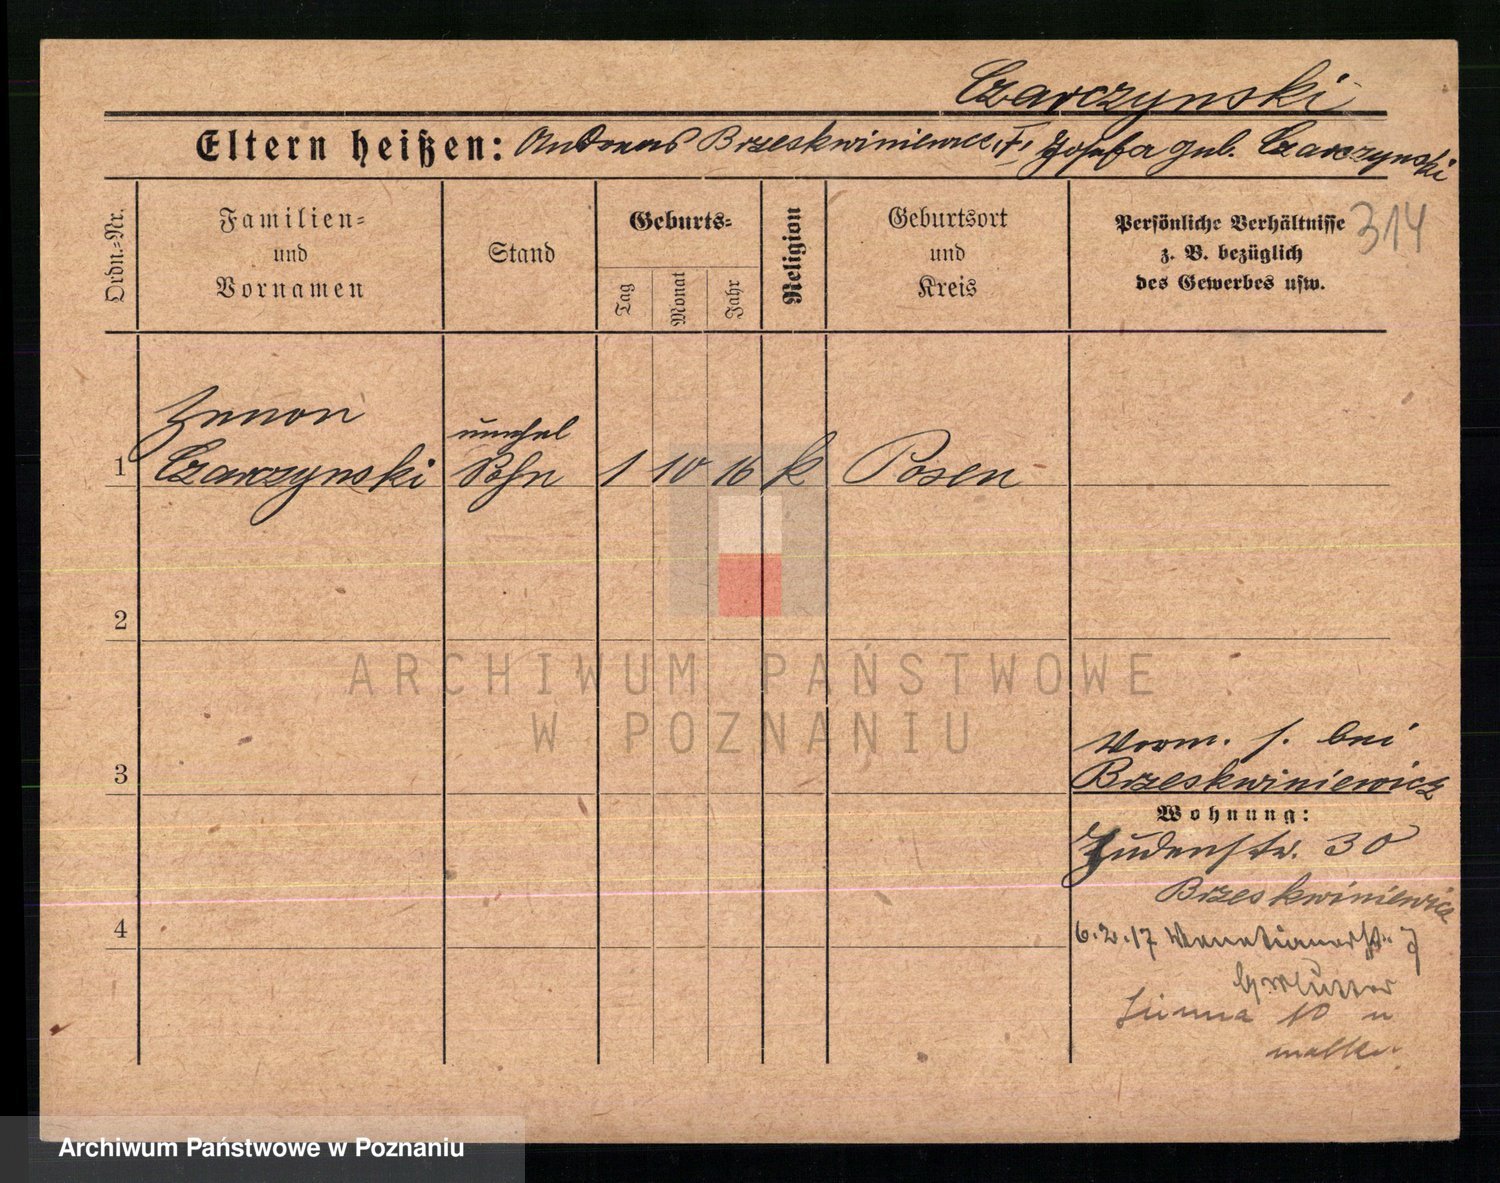 Czarczynski
Eltern heißen: Andreas Brzeskwiniewicz, Josefa geb. Czarczynski
Ordn.=Nr.
Familien=
und
Vornamen
Stand
Geburts=
Tag
Monat
Jahr
Religion
Geburtsort
und
Kreis
Persönliche Verhältnisse
z. B. bezüglich
des Gewerbes usw.
314
Zenon
unehel
1 Czarczynski Sohn 1 10 16 k Posen
2
ARCHIWUM PAŃSTWOWE
W POZNANIU
Vorm. s. bei
3 Brzeskwiniewicz
Wohnung:
Judenstr. 30
Brzeskwiniewicz
4
6.2.17
10
Archiwum Państwowe w Poznaniu